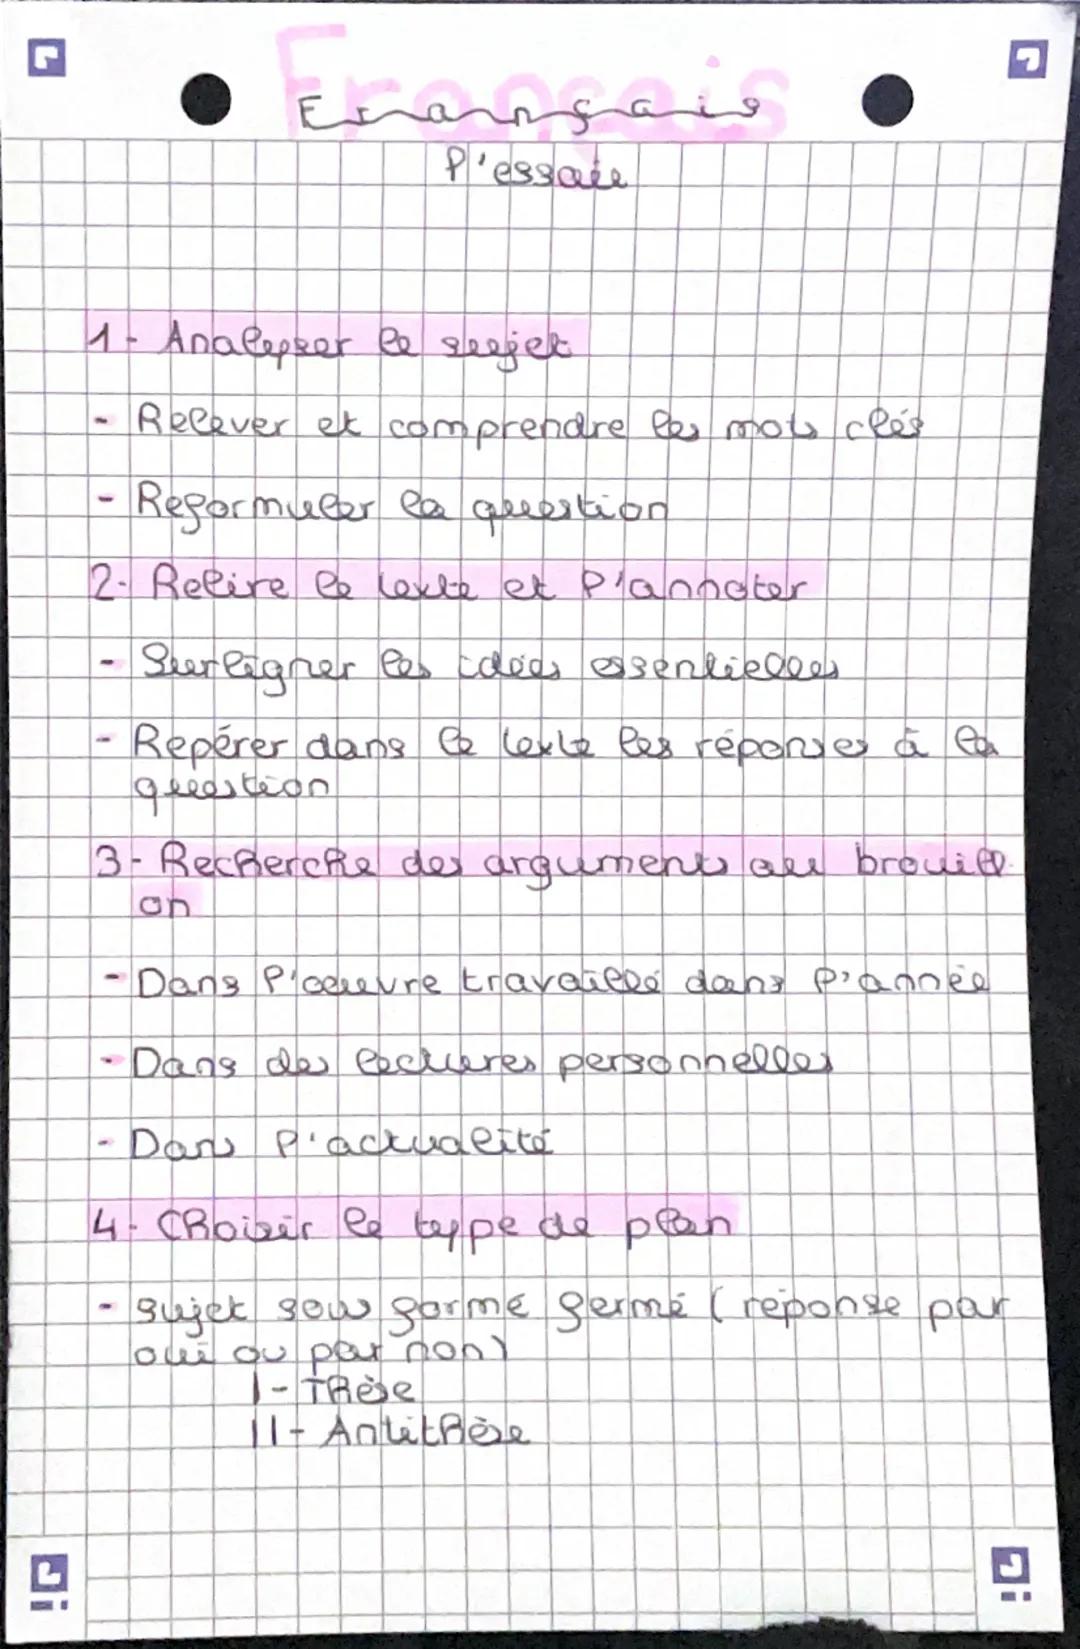 Français
l'essaie
1- Analyser le sujet
- Relever et comprendre les mots clés
- Reformuler la question
2- Relire le texte et l'annoter
- Surligner les idées essentielles
- Repérer dans le texte les réponses à la
question
3- Recherche des arguments au brouill-
on
- Dans l'oeuvre travaillé dans l'année
- Dans des lectures personnelles
- Dans l'actualité
4- Choisir le type de plan
- sujet sous forme fermé (réponse par
oui ou par non)
I- Thèse
II- Antithèse